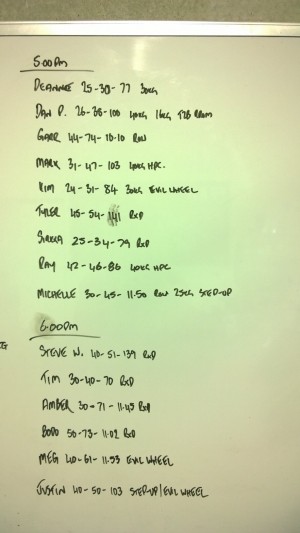 5:00pm
DEANNNE 25-30-77 30KG
DAN P. 26-38-100 40KG 16KG T2B RROM
GARR 44-74-10:10 ROW
MARK 31-47-103 40KG HPC.
KIM 24-31-84 30KG EVIL WHEEL
TYLER 45-54-141 RXD
25-34-79 RXD
RAY 42-46-86 40KG HPC
MICHELLE 30-45-11:50 ROW 25KG STEP-UP
6:00pm
STEVE W. 40-51-139 RXD
TIM 30-40-70 RXD
AMBER 30-71-11:45 RXD
BODO 50-73-11:02 RXD
MEG 40-61-11:53 EVIL WHEEL
JUSTIN 40-50-103 STEP-UP/EVIL WHEEL